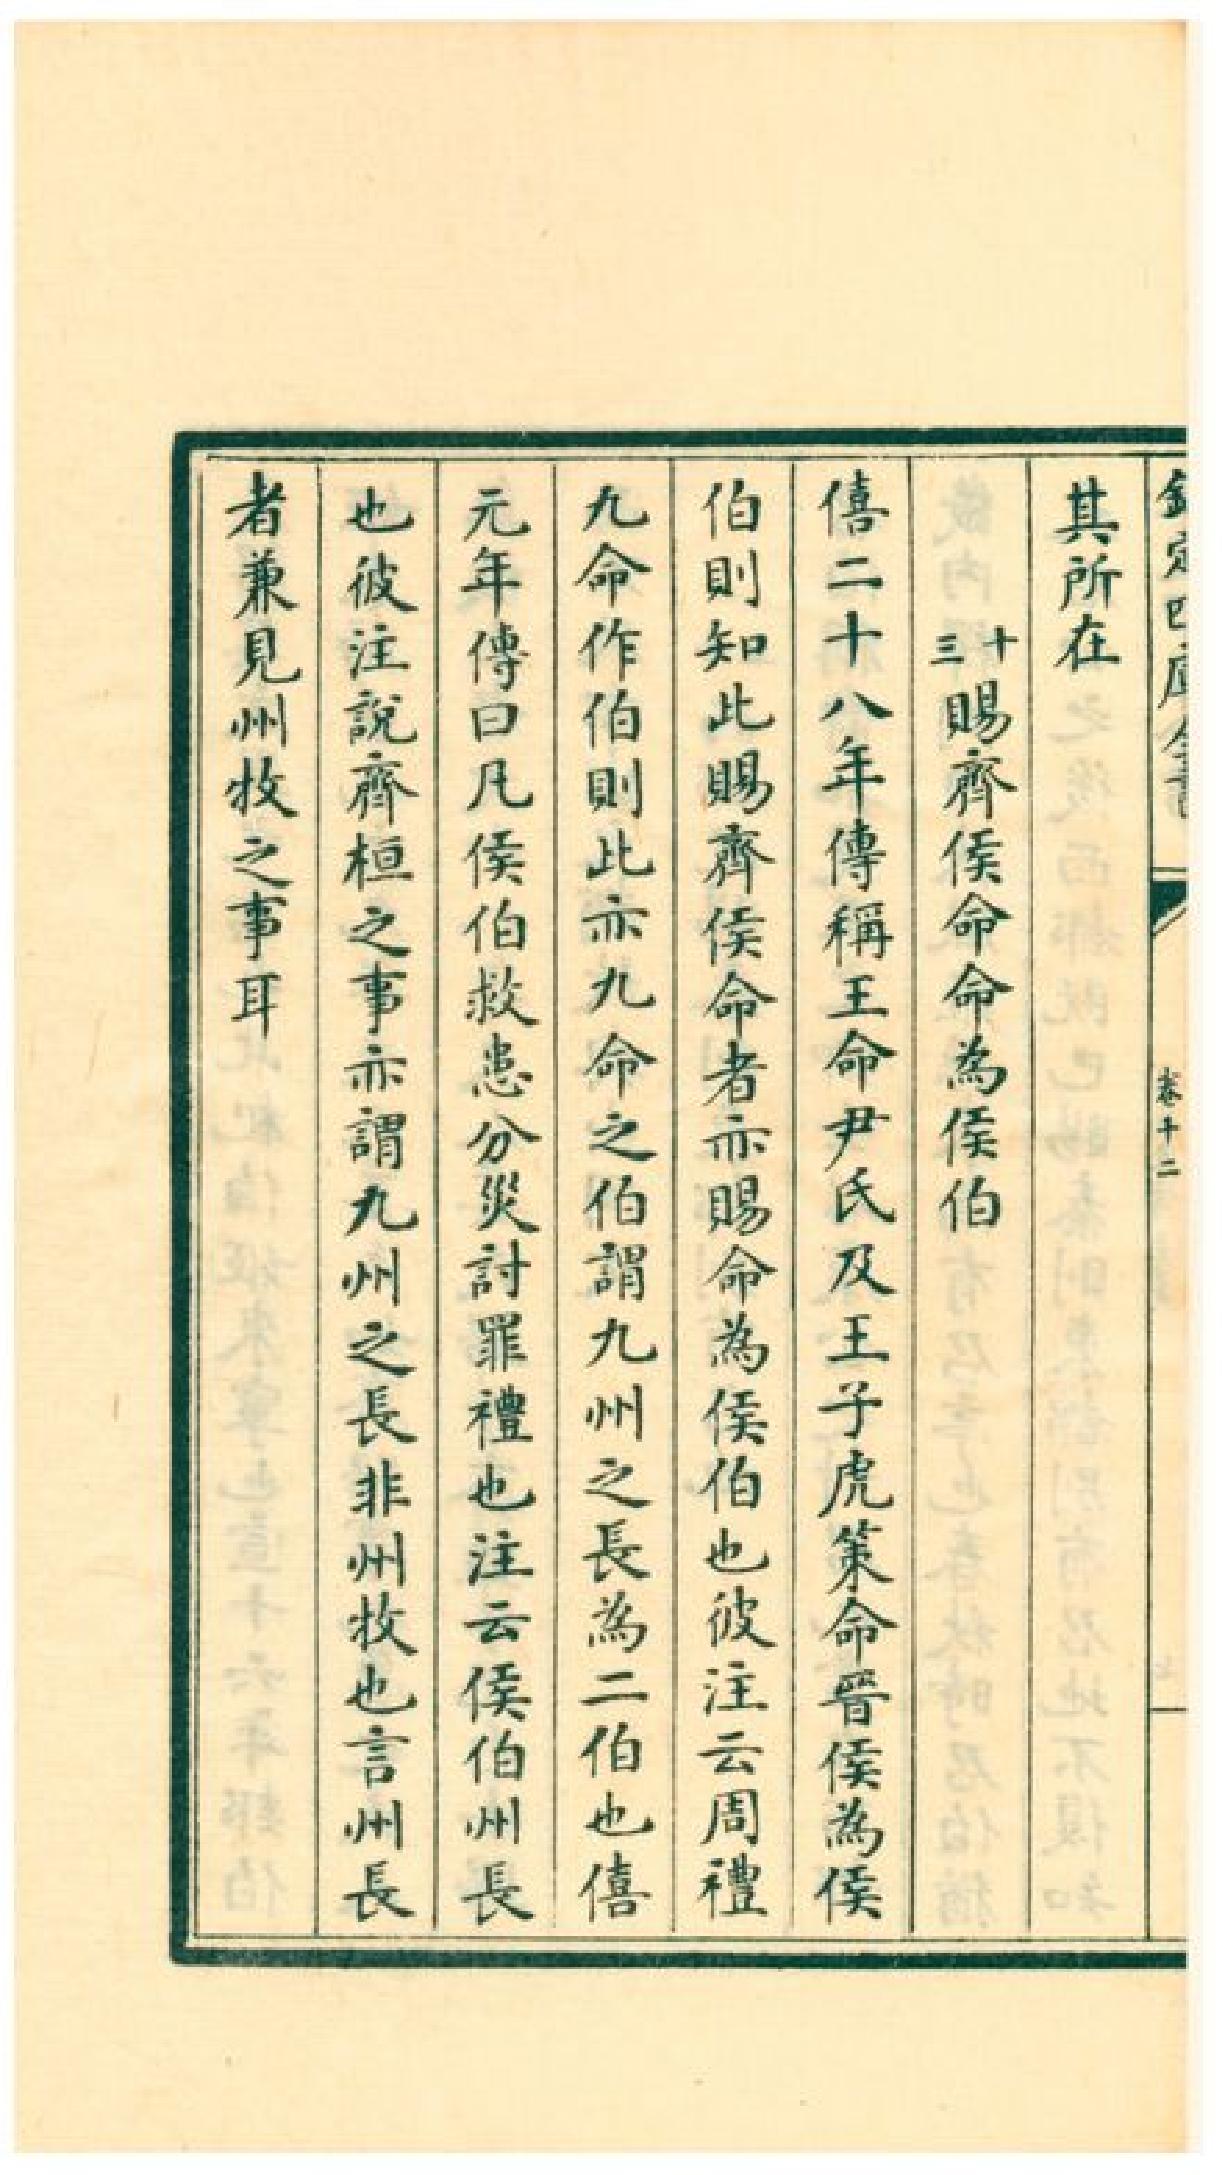 欽定四庫全書 卷十二
其所在
十三賜齊侯命命為侯伯
僖二十八年傳稱王命尹氏及王子虎策命晉侯為侯
伯則知此賜齊侯命者亦賜命為侯伯也彼注云周禮
九命作伯則此亦九命之伯謂九州之長為二伯也僖
元年傳曰凡侯伯救患分災討罪禮也注云侯伯州長
也彼注說齊桓之事亦謂九州之長非州牧也言州長
者兼見州牧之事耳